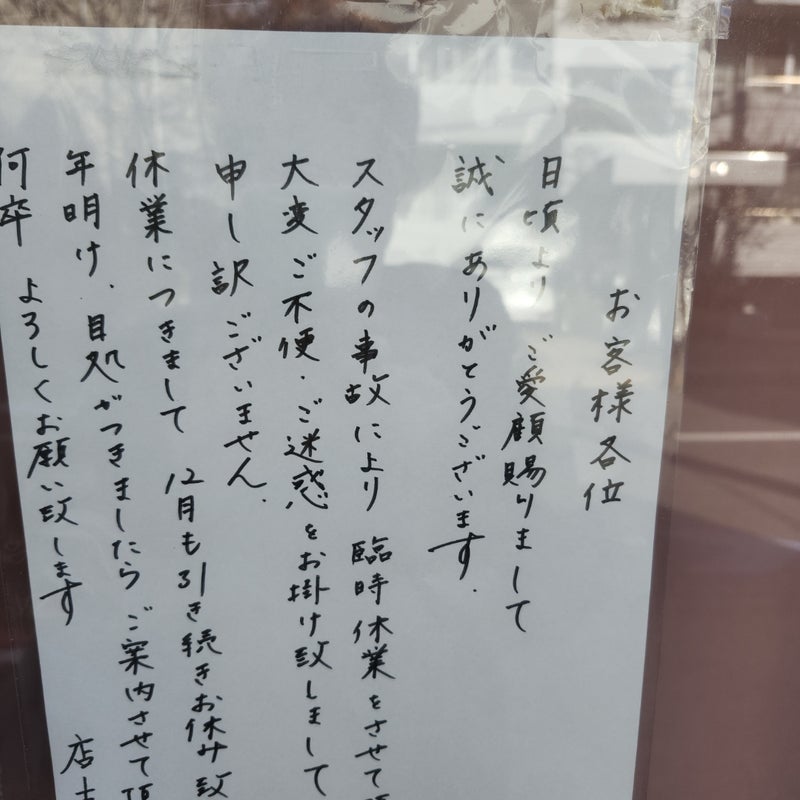 お客様各位
日頃より ご愛顧賜りまして
誠にありがとうございます.
スタッフの事故により 臨時休業をさせて
大変ご不便・ご迷惑をお掛け致しまして
申し訳ございません.
休業につきまして 12月も引き続きお休み致
年明け、目処がつきましたら ご案内させて頂
何卒 よろしくお願い致します
店主